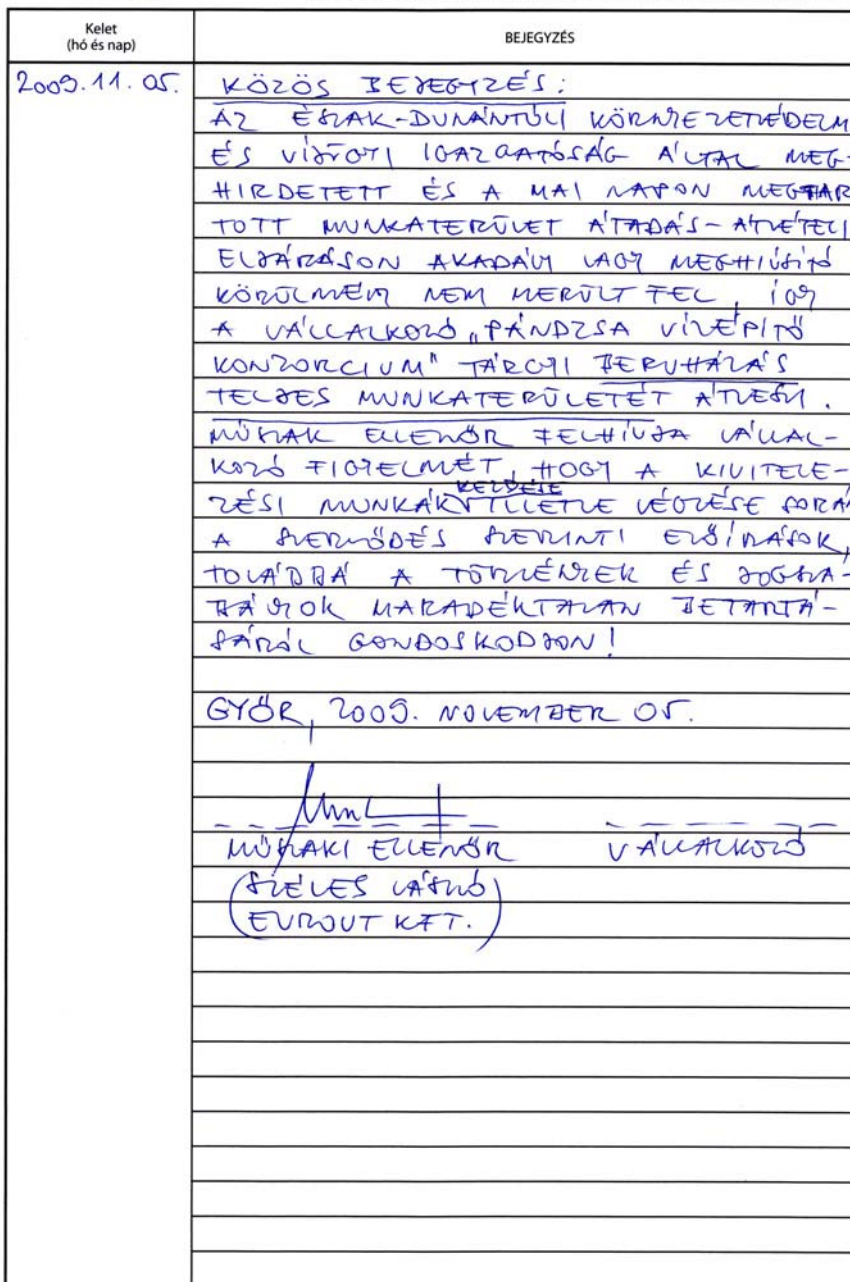 Kelet
(hó és nap)
BEJEGYZÉS
2009.11.05. KÖZÖS BEJEGYZÉS:
AZ ÉSZAK-DUNÁNTÚLI KÖRNYEZETVÉDELM
ÉS VÍZÜGYI IGAZGATÓSÁG ÁLTAL MEG-
HIRDETETT ÉS A MAI NAPON MEGTAR
TOTT MUNKATERÜLET ÁTADÁS-ÁTVÉTELI
ELJÁRÁSON AKADÁLY VAGY MEGHIÚSÍTÓ
KÖRÜLMÉNY NEM MERÜLT FEL, ÍGY
A VÁLLALKOZÓ „PÁNDZSA VÍZÉPÍTŐ
KONZORCIUM" TÁRGYI BERUHÁZÁS
TELJES MUNKATERÜLETÉT ÁTVESZI.
MŰSZAK ELLENŐR FELHÍVJA VÁLLAL-
KOZÓ FIGYELMÉT, HOGY A KIVITELE-
ZÉSI MUNKÁK KEZDÉSE ILLETVE VÉGZÉSE SORÁ
A SZERZŐDÉS SZERINTI ELŐÍRÁSOK,
TOVÁBBÁ A TÖRVÉNYEK ÉS JOGSZA-
BÁLYOK MARADÉKTALAN BETARTÁ-
SÁRÓL GONDOSKODJON!
GYŐR, 2009. NOVEMBER 05.
MŰSZAKI ELLENŐR VÁLLALKOZÓ
(SZÉLES LÁSZLÓ)
(EUROUT KFT.)